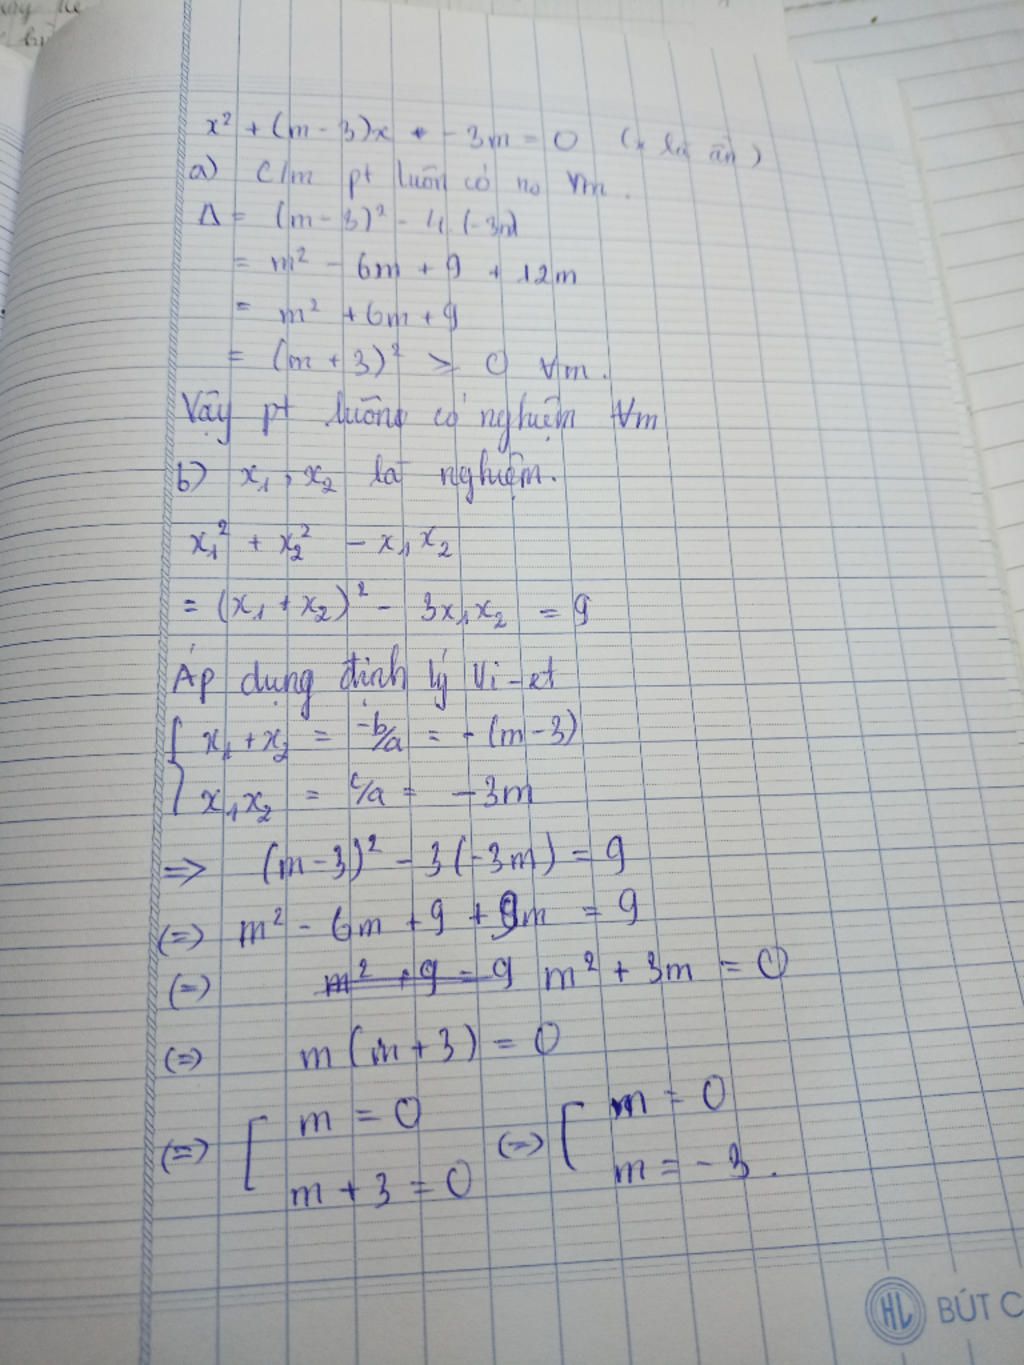 x² + (m - 3)x - 3m = 0 (x là ẩn)
a) C/m pt luôn có no ∀m.
Δ = (m - 3)² - 4(-3m)
= m² - 6m + 9 + 12m
= m² + 6m + 9
= (m + 3)² ≥ 0 ∀m.
Vậy pt luôn có nghiệm ∀m
b) x₁, x₂ là nghiệm.
x₁² + x₂² - x₁x₂
= (x₁ + x₂)² - 3x₁x₂ = 9
Áp dụng định lý Vi-et
x₁ + x₂ = -b/a = -(m - 3)
x₁x₂ = c/a = -3m
=> (m - 3)² - 3(-3m) = 9
(=) m² - 6m + 9 + 9m = 9
(=) m² + 9 = 9 m² + 3m = 0
(=) m(m + 3) = 0
(=) [ m = 0 (=) [ m = 0
m + 3 = 0 m = -3.
HL BÚT C